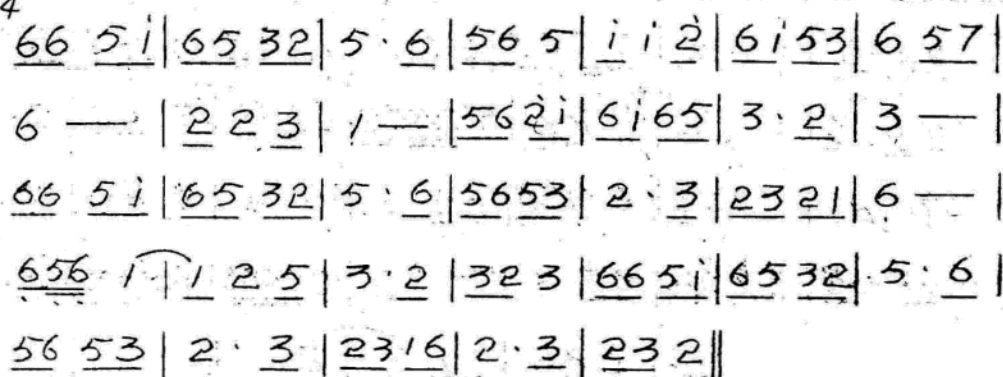 4
66 5i | 65 32 | 5 · 6 | 56 5 | i i 2̇ | 6i 53 | 6 57 |
6 — | 2 2 3 | 1 — | 56 2̇i | 6i 65 | 3 · 2 | 3 — |
66 5i | 65 32 | 5 · 6 | 56 53 | 2 · 3 | 23 21 | 6̣ — |
6̣5̣6̣ 1 | 1 2 5 | 3 · 2 | 32 3 | 66 5i | 65 32 | 5 · 6 |
56 53 | 2 · 3 | 23 16 | 2 · 3 | 23 2 ‖